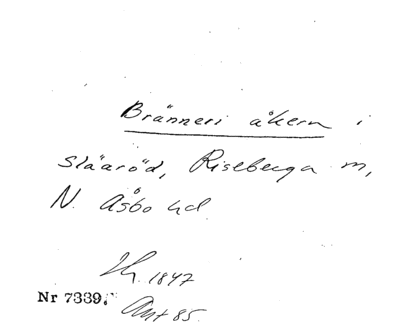 Bränneri åkern i
Slääröd, Riseberga m,
N. Åsbo hd
1847
Nr 7339.
Ant 85.